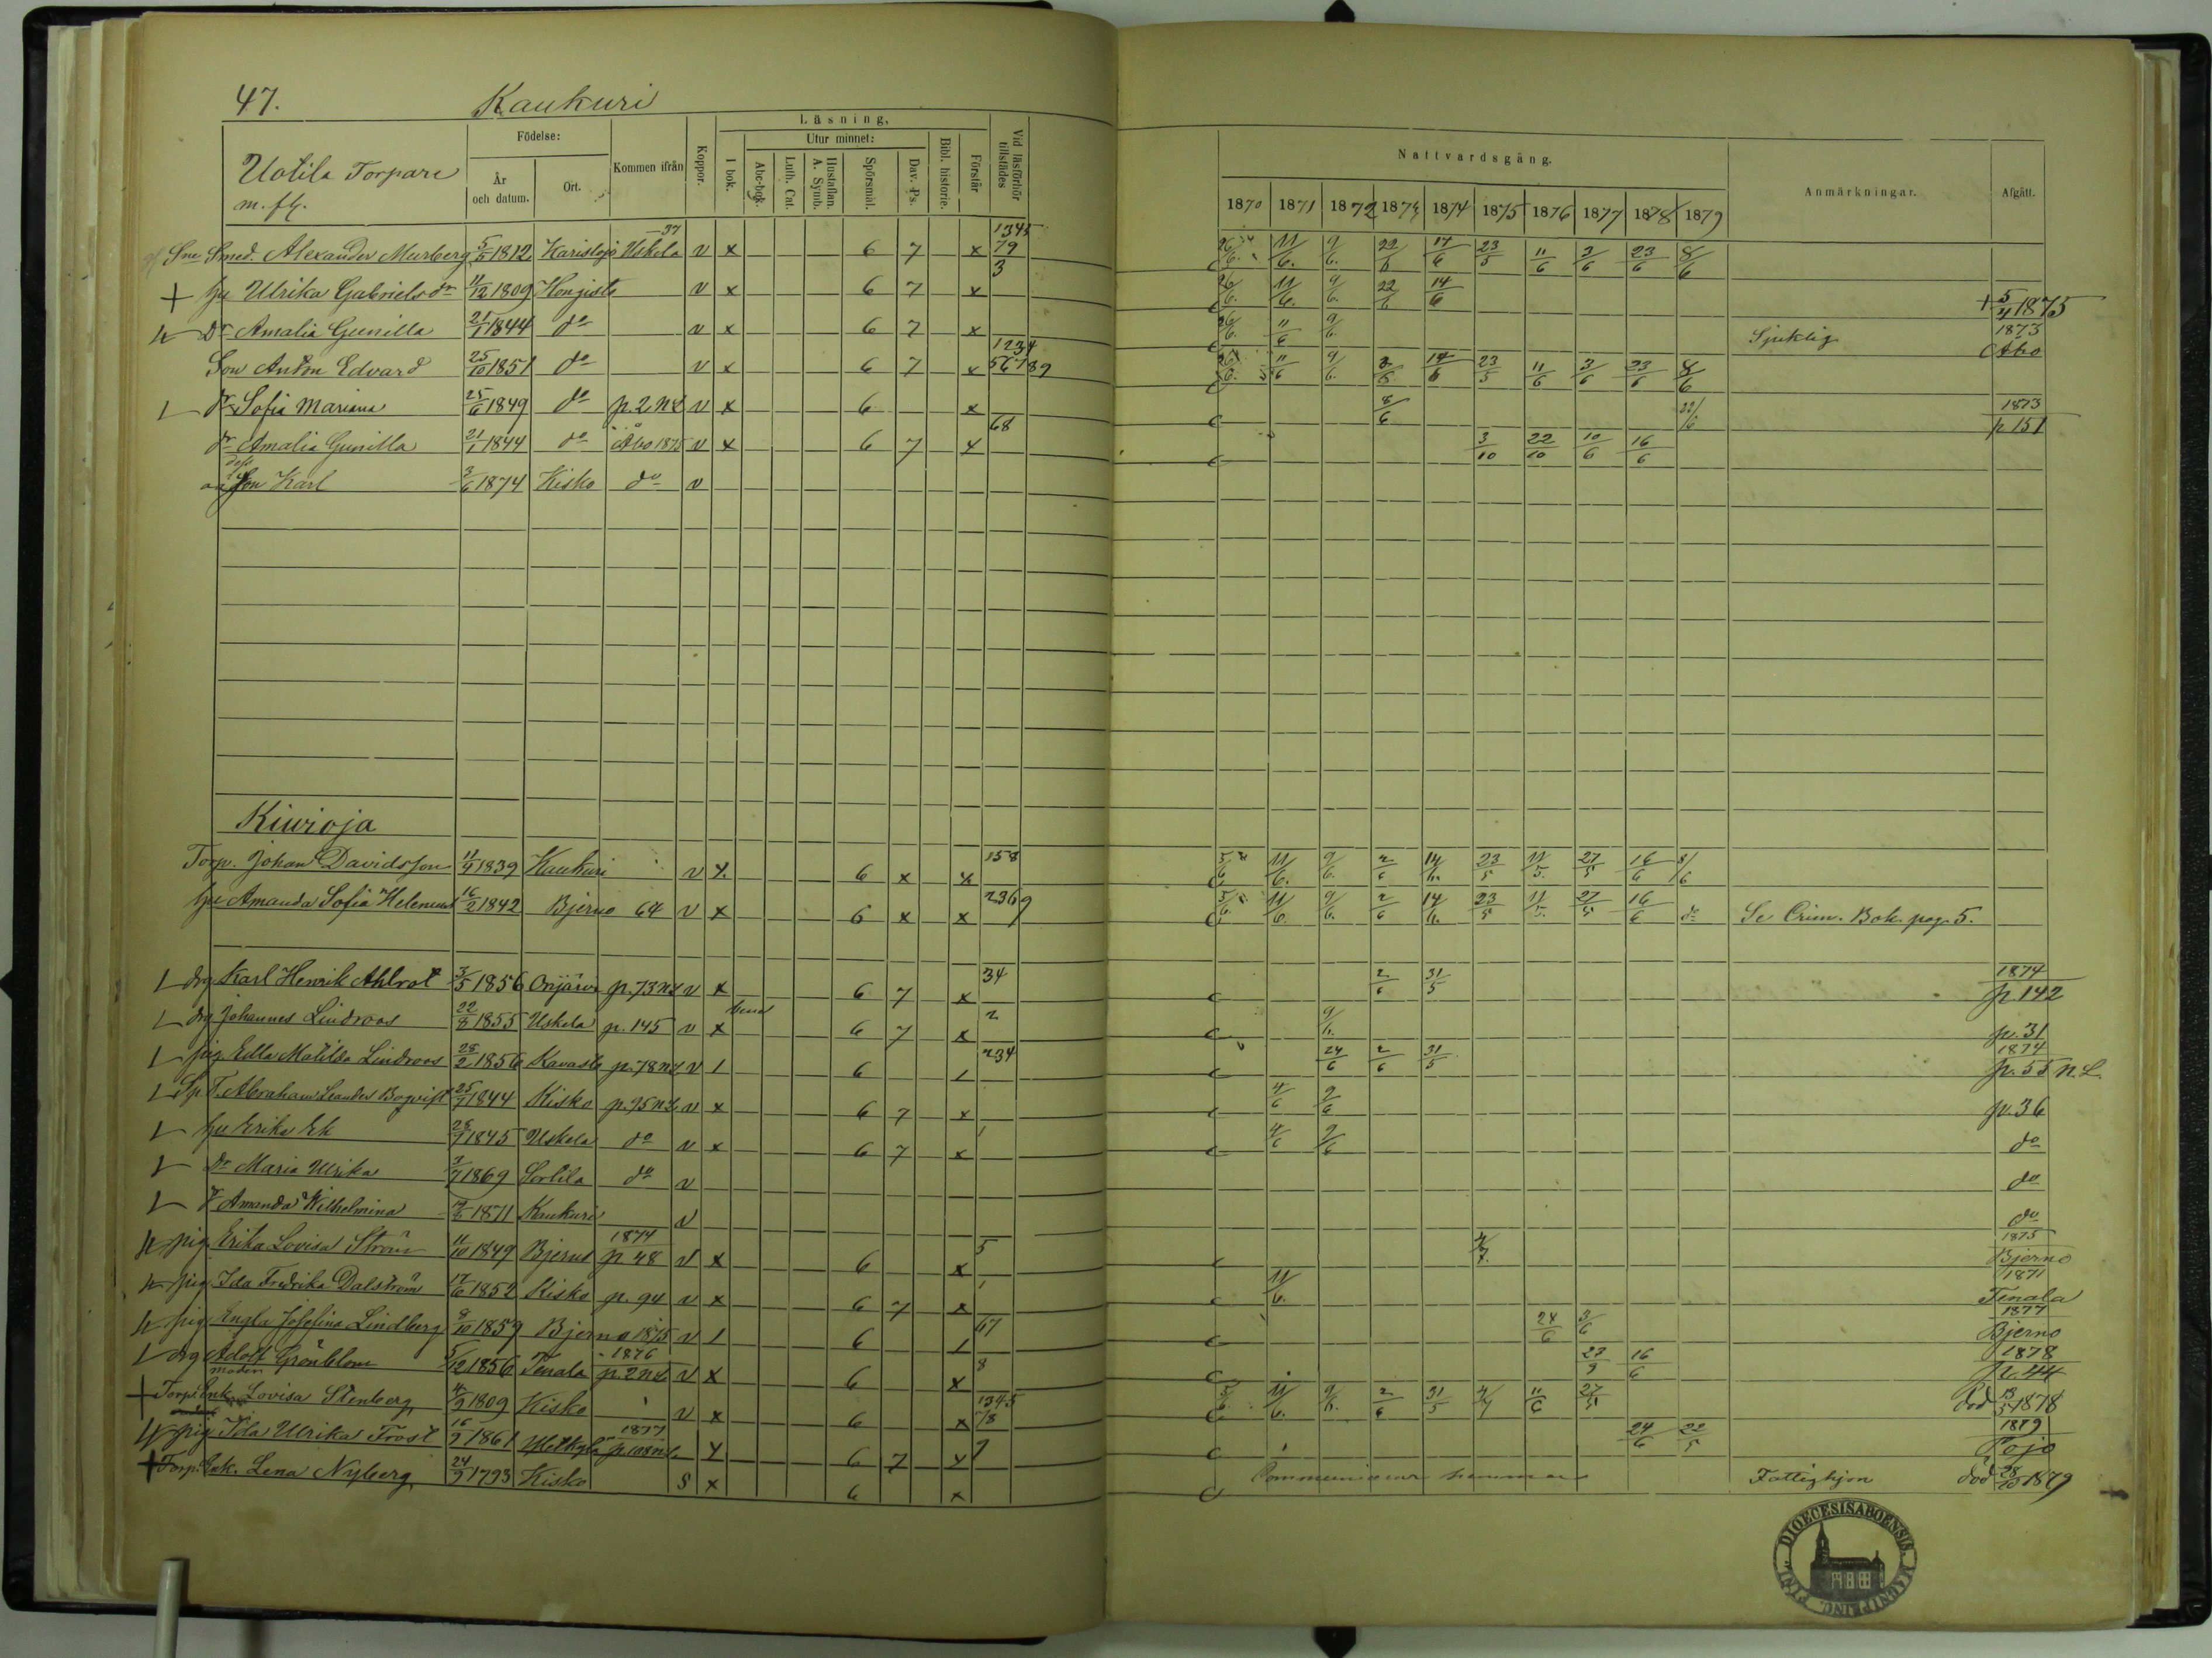 47. Kaukuri
Uotila Torpare
m. fl.
Födelse:
År och datum.
Ort.
Kommen ifrån
Koppor.
Läsning,
I bok.
Utur minnet:
Abc-bok.
Luth. Cat.
Hustaflan. A. Symb.
Spörsmål.
Dav. Ps.
Bibl. historie.
Förstår
Vid läsförhör tillstädes
Nattvardsgång.
1870 1871 1872 1873 1874 1875 1876 1877 1878 1879
Anmärkningar.
Afgått.
Smed. Alexander Murberg 5/5 1812 Karislojo Uskela 37 v x 6 7 x 1345 79 11/6. 9/6. 22/6 14/6 23/5 11/6 3/6 23/6 8/6
+ hu Ulrika Gabrielsdr 11/12 1809 Hongisto v x 6 7 x 3 26/6. 11/6. 9/6. 22/6 14/6 + 5/4 1875
Dr Amalia Gunilla 21/1 1844 do v x 6 7 x 26/6. 11/6 9/6. Sjuklig 1873 Åbo
Son Anton Edvard 25/10 1851 do v x 6 7 x 1234 56789 11/6 9/6. 14/6 23/5 11/6 3/6 23/6 8/6
dr Sofia Mariana 25/6 1849 do p. 2 NL v x 6 x 8/6 22/6 1873 p 151
dr Amalia Gunilla 21/1 1844 do Åbo 1875 v x 6 7 x 68 3/10 22/10 10/6 16/6
Son Karl 3/6 1874 Kisko do v
Kiwioja
Torp. Johan Davidsson 11/9 1839 Kaukuri v x 6 x x 158 5/6 11/6. 9/6. 2/6 14/6. 23/5 11/5. 27/5 16/6 8/6
hu Amanda Sofia 16/2 1842 Bjerno 64 v x 6 x x 2369 5/6. 11/6. 9/6. 2/6 14/6. 23/5 11/5. 27/5 16/6 do Se Crim. Bok pag 5.
drg Karl Henrik Ahlrot 3/5 1856 Orijärvi p. 73 NL v x 6 7 x 34 2/6 31/5 1874 p. 142
drg Johannes Lindroos 22/8 1855 Uskela p. 145 v x 6 7 x 2 9/6. p. 31
pig Edla Matilda Lindroos 28/2 1856 Kavasto p. 78 NL v 1 6 1 234 24/6 2/6 31/5 1874 p. 55 N.L.
Abraham Leander Bogvist 25/7 1844 Kisko p. 75 NL v x 6 7 x 4/6 9/6 p. 36
hu Erika Ek 28/7 1845 Uskela do v x 6 7 x 1 4/6 9/6 do
Dr Maria Ulrika 1869 Sorlila do v do
Amanda Wilhelmina 1871 Kaukuri v do
pig Erika Lovisa Ström 11/10 1849 Bjerno 1874 p 48 v x 6 x 5 4/7. 1875 Bjerno
pig Ida Fredrika Dalström 17/6 1852 Kisko p. 94 v x 6 7 x 1 11/6. 1871 Tenala
pig Engla Josefina Lindberg 9/10 1859 Bjerno 1875 v 1 6 1 67 24/6 3/6 1877 Bjerno
drg Adolf Grönblom 5/12 1856 Tenala 1876 p. 2 NL v x 6 x 8 27/9 16/6 1878 p. 44
+ Torp. Enk. moder Lovisa Stenberg 4/9 1809 Kisko v x 6 x 1345 78 11/6. 9/6. 2/6 31/5 4/7 11/6 27/5 död 13/5 1878
pig Ida Ulrika Frost 16/9 1861 1877 x 6 7 x 9 24/6 22/5 1879 Pojo
+ Torp. Enk. Lena Nyberg 24/9 1793 Kisko S x 6 x Communicerar hemma Fattighjon död 28/10 1879
DIOECESIS ABOENSIS